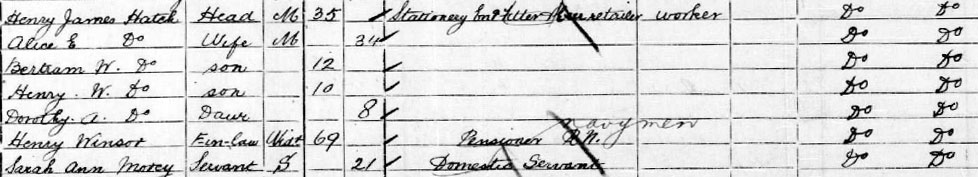 Henry James Hatch Head M 35 Stationery retailer worker Do Do
Alice E Do Wife M 34 Do Do
Bertram W. Do son 12 Do Do
Henry. W. Do son 10 Do Do
Dorothy. A. Do Daur 8 Do Do
navy men
Henry Winsor F-in-law Widr 69 Pensioner R.N. Do Do
Sarah Ann Morey Servant S 21 Domestic Servant Do Do